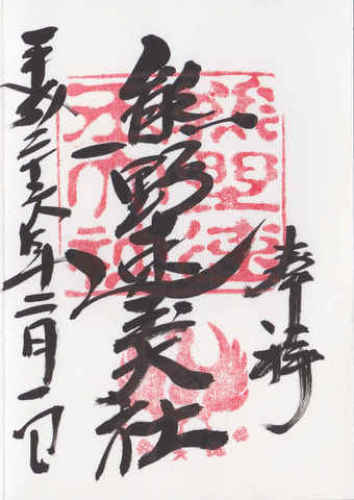 奉拝
熊野速玉大社
平成二十六年十二月一日
熊野速
玉大社